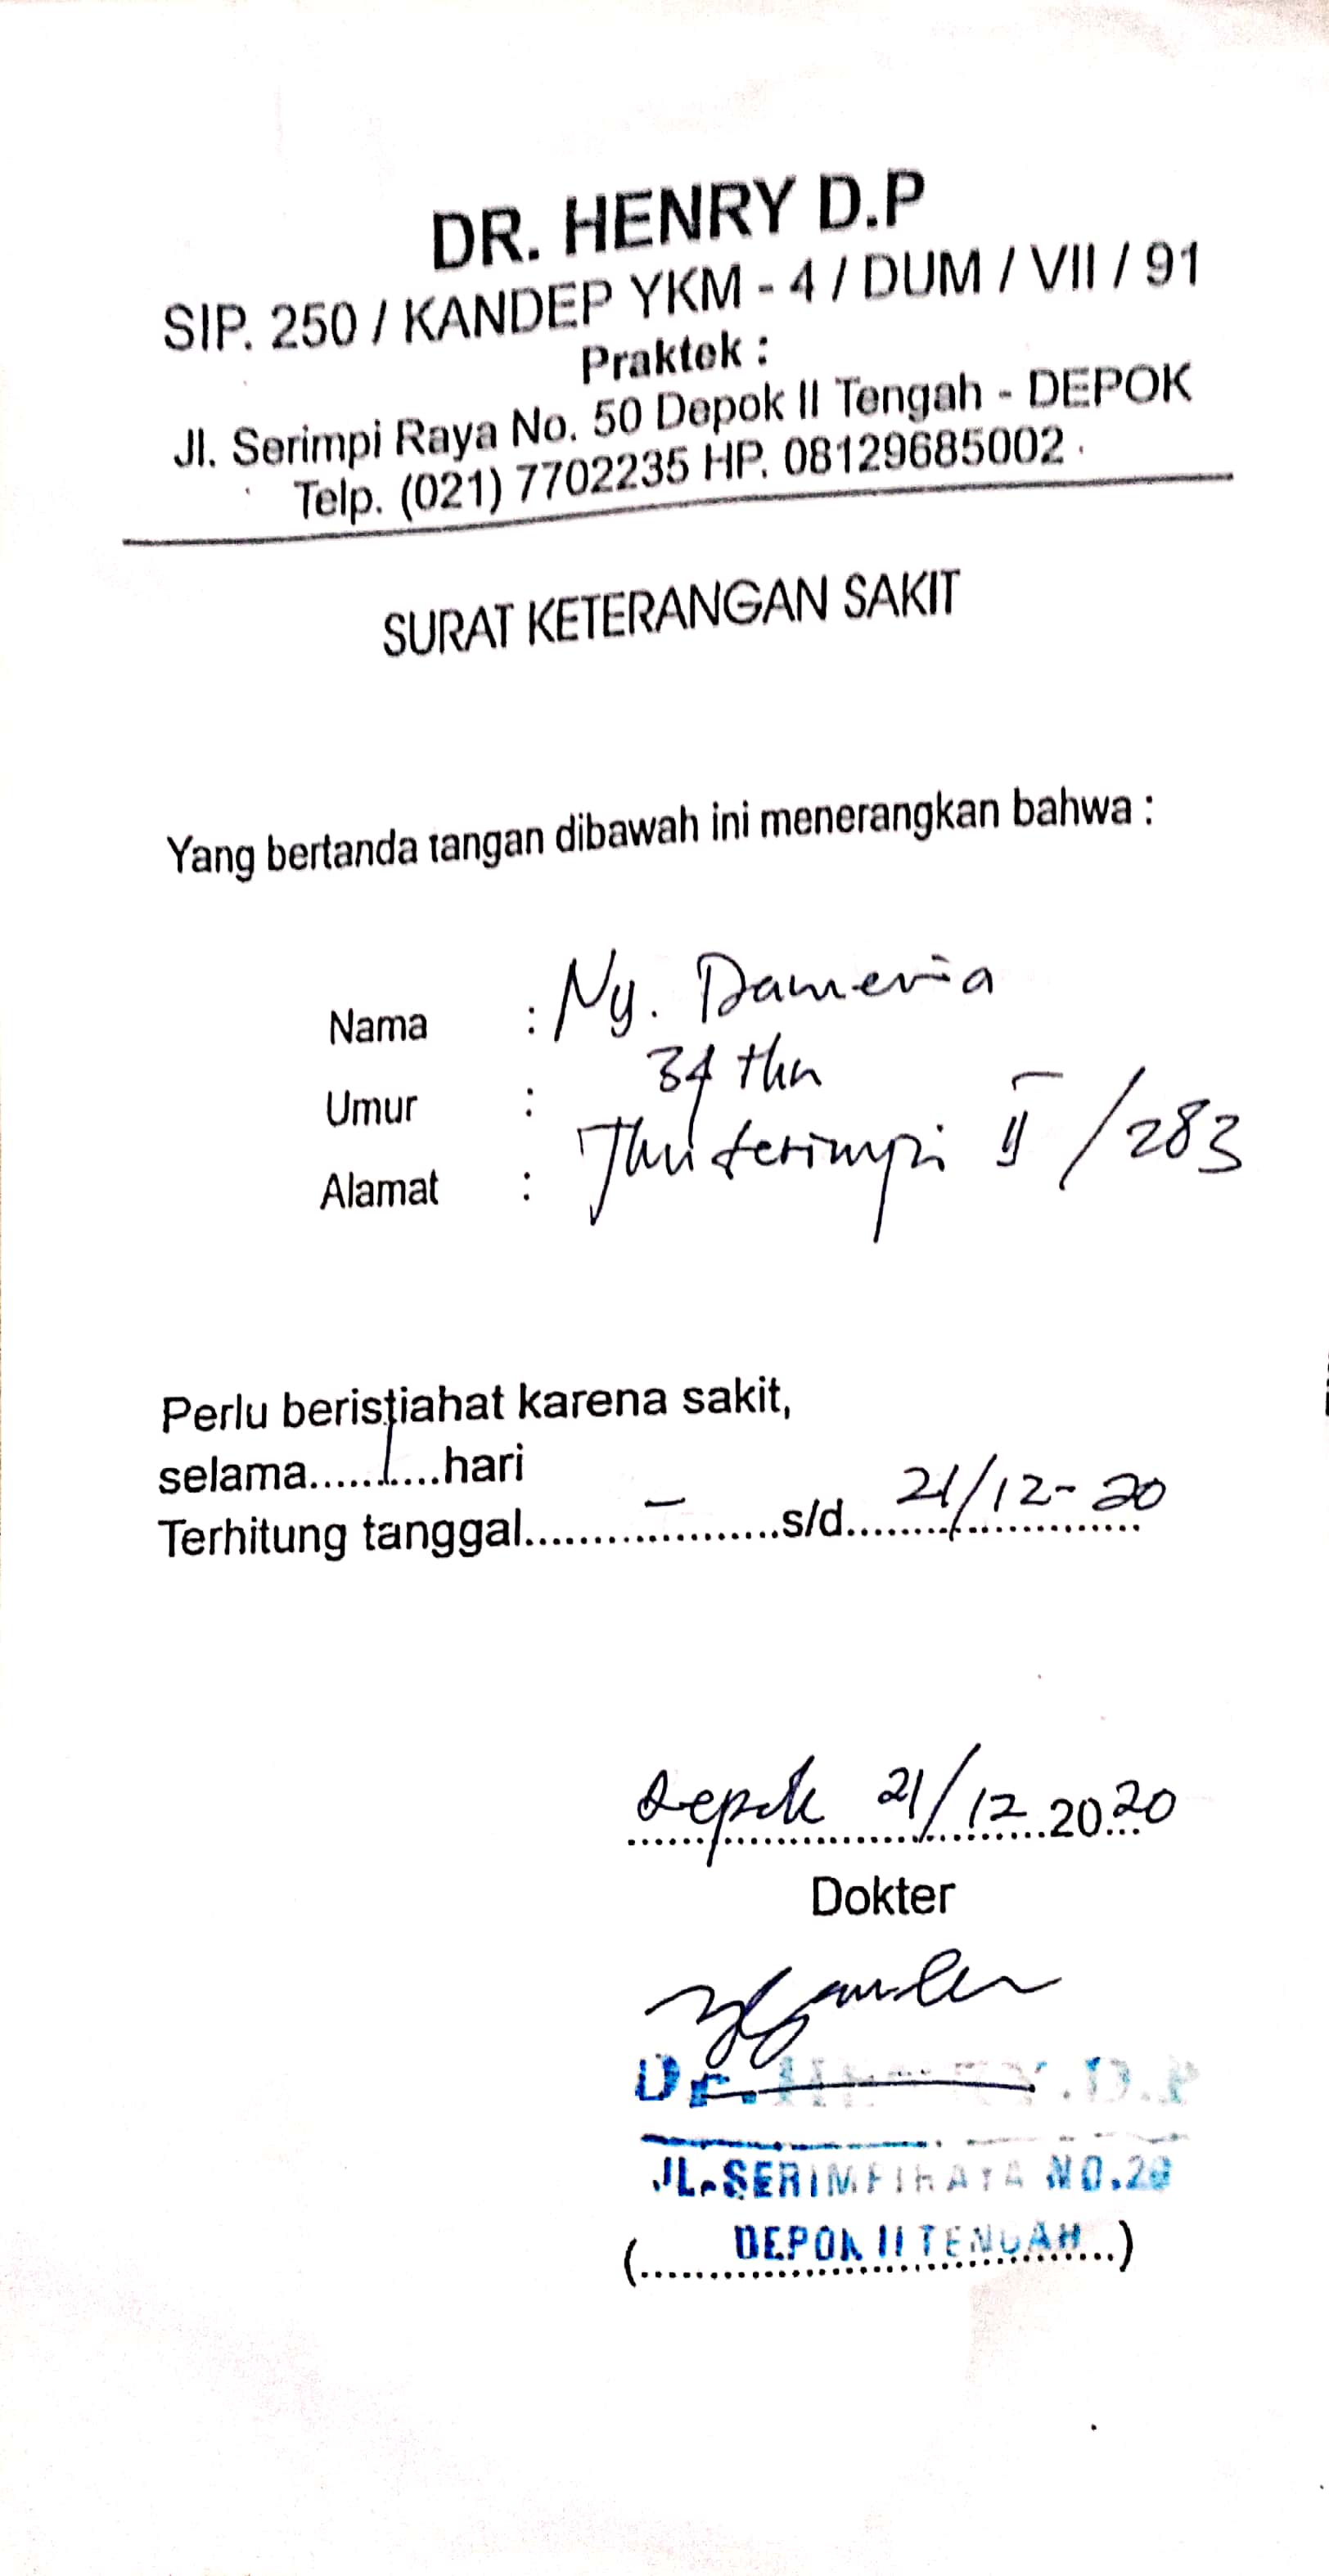 DR. HENRY D.P
SIP. 250 / KANDEP YKM - 4 / DUM / VII / 91
Praktek :
Jl. Serimpi Raya No. 50 Depok II Tengah - DEPOK
Telp. (021) 7702235 HP. 08129685002
SURAT KETERANGAN SAKIT
Yang bertanda tangan dibawah ini menerangkan bahwa :
Nama : Ny. Dameria
Umur : 34 thn
Alamat : serimpi II / 283
Perlu beristiahat karena sakit,
selama.....1.....hari
Terhitung tanggal.........–.........s/d.....21/12-20
Depok 21/12 2020
Dokter
Dr. H .D.P
JL. SERIMPI RAYA NO.20
(DEPOK II TENGAH)